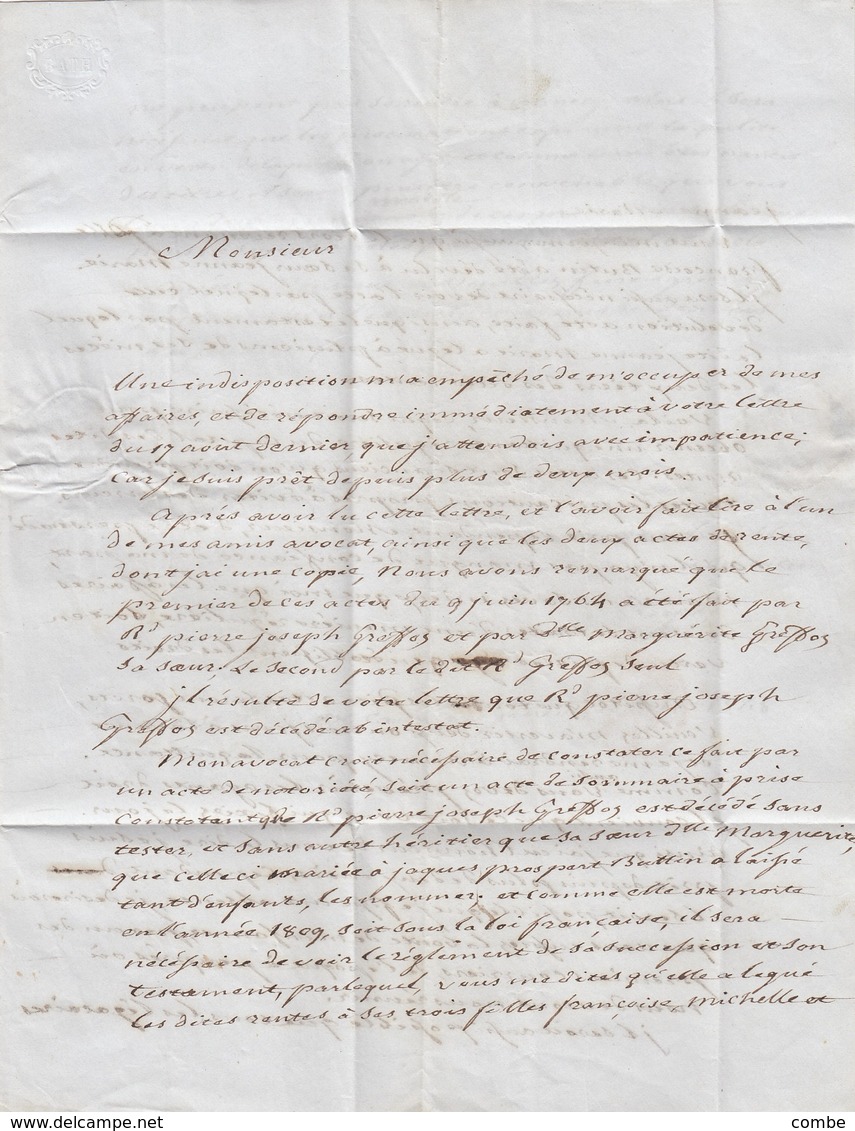 BATH
Monsieur
Une indisposition m'a empêché de m'occuper de mes
affaires, et de répondre immédiatement à votre lettre
du 17 août dernier que j'attendois avec impatience;
Car je suis prêt depuis plus de deux mois.
Après avoir lu cette lettre, et l'avoir fait lire à l'un
de mes amis avocat, ainsi que les deux actes de rente,
dont j'ai une copie, Nous avons remarqué que le
premier de ces actes du 9 juin 1764 a été fait par
Rd pierre joseph Greffoz et par dlle Marguérite Greffoz
sa sœur; Le second par le dit Rd Greffoz seul
jl résulte de votre lettre que Rd pierre joseph
Greffoz est décédé ab intestat.
Mon avocat croit nécessaire de constater ce fait par
un acte de notoriété, soit un acte de sommaire à prise
Constatant que Rd pierre joseph Greffoz est décédé sans
tester, et sans autre héritier que sa sœur dlle Marguerite,
que celle ci mariée à jaques prospert Buttin a laissé
tant d'enfants, les nommer; et comme elle est morte
en l'année 1809, soit sous la loi françaîse, il sera
nécéssaire de voir le réglement de sa succession et son
testament, par lequel, vous me dites qu'elle a legué
les dites rentes à ses trois filles françoise, michelle et